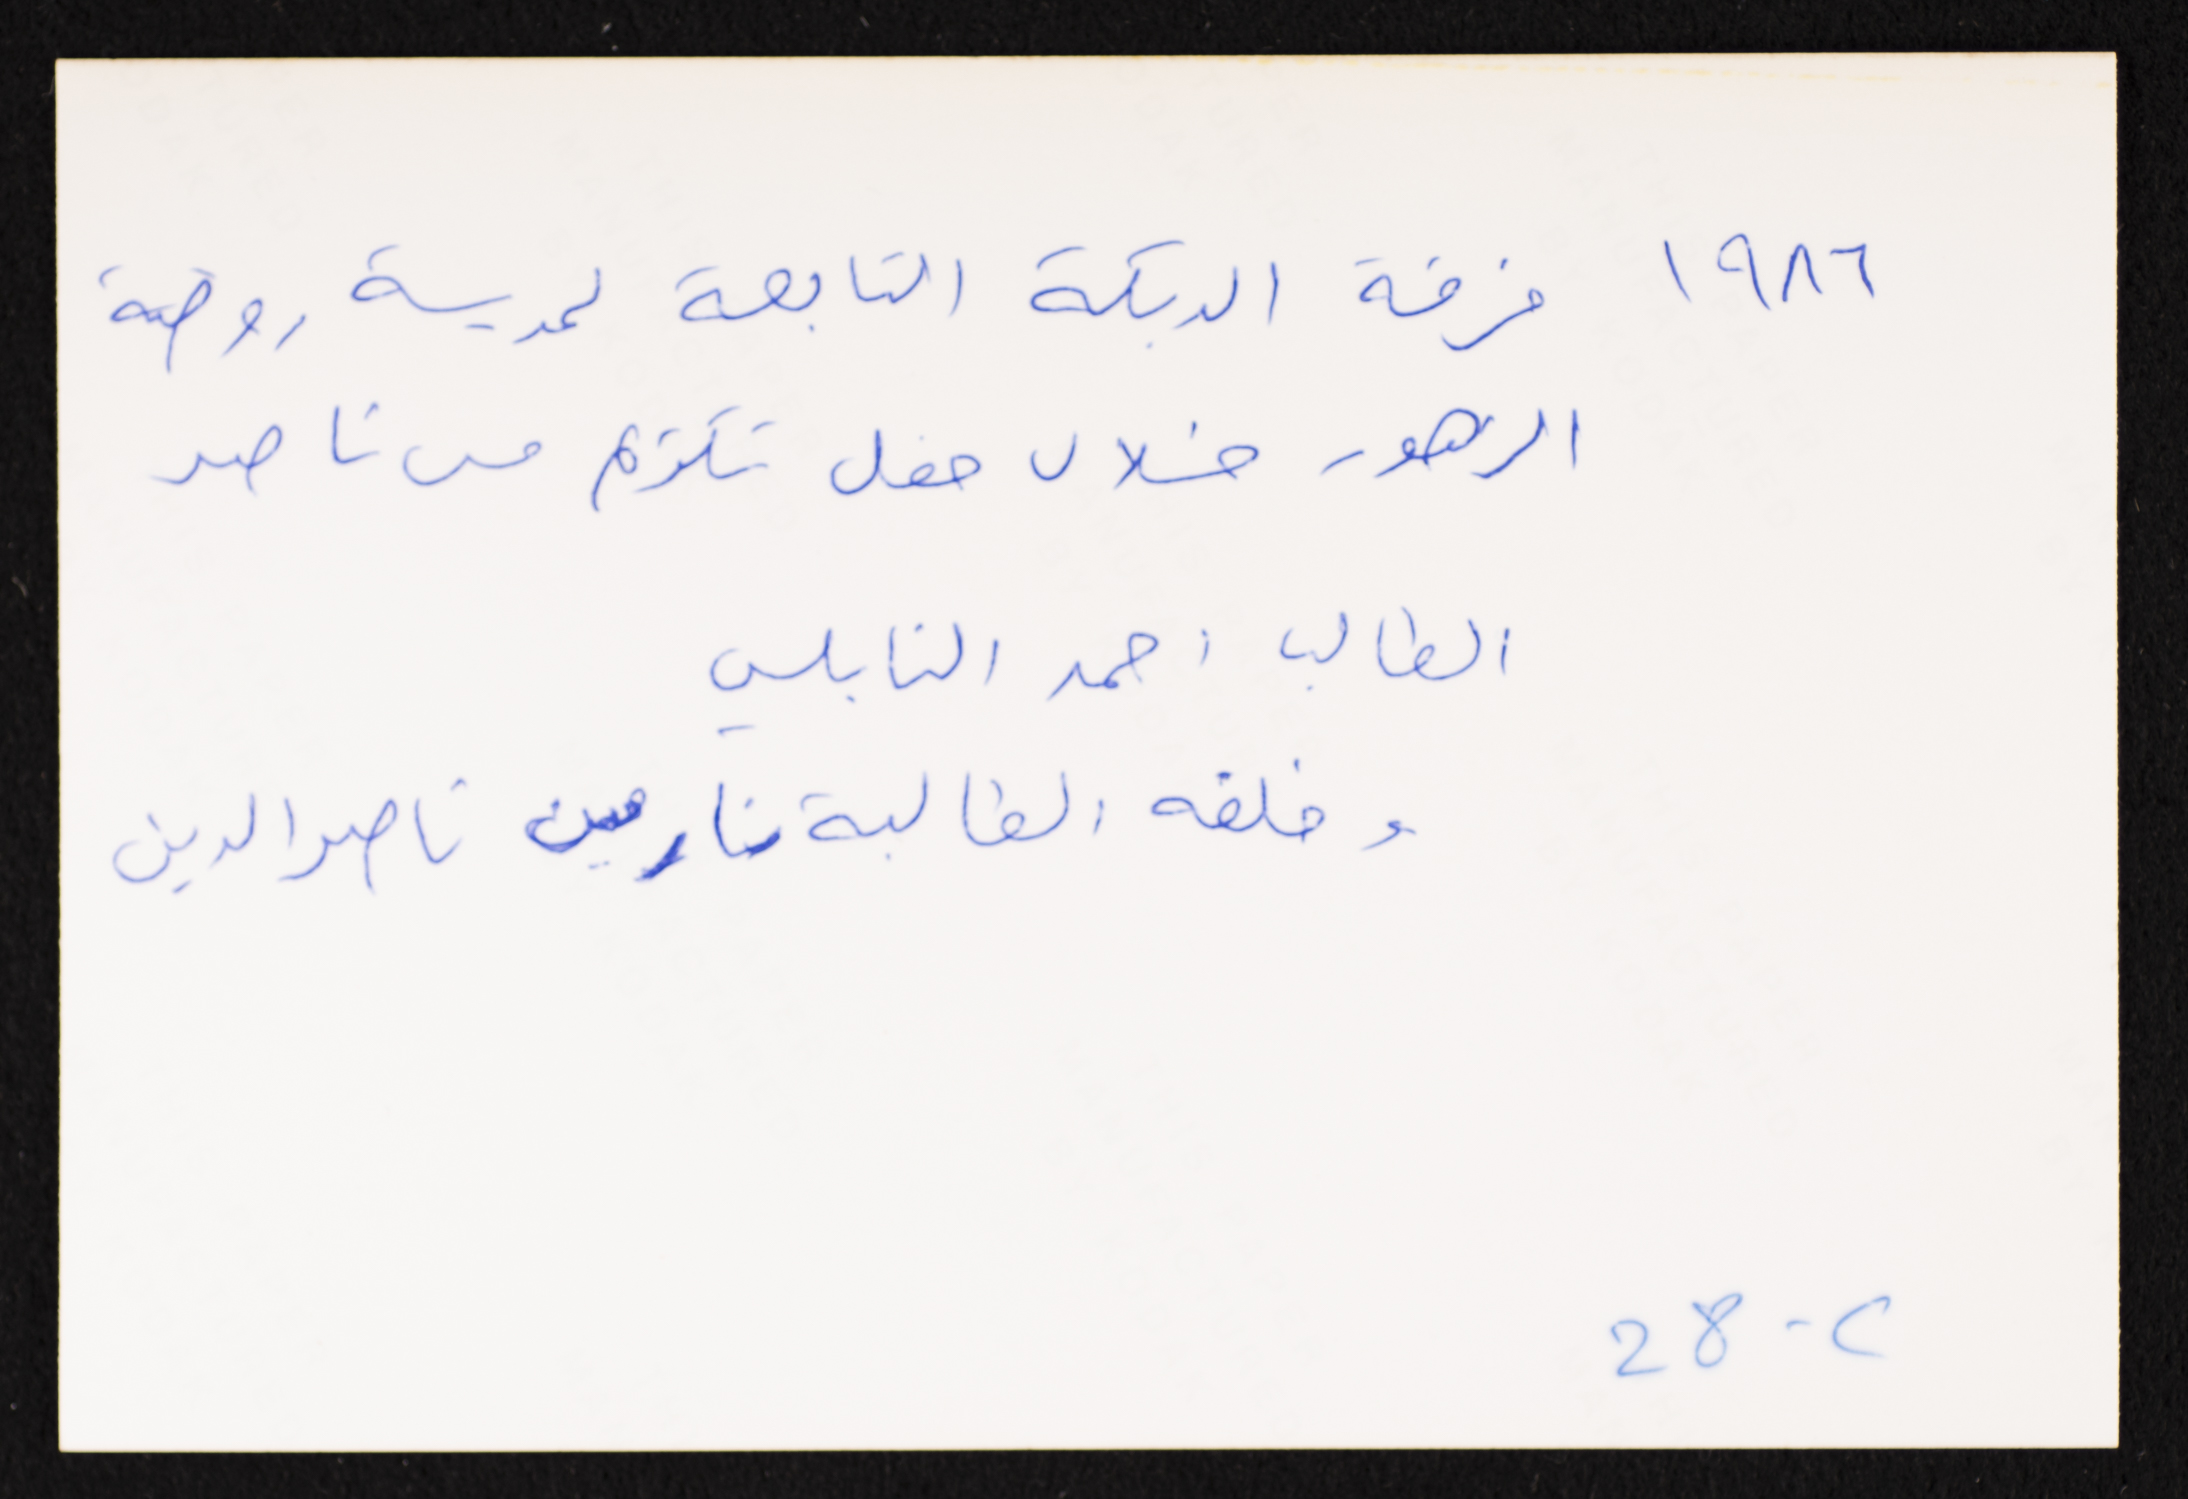 ١٩٨٦ فرقة الدبكة التابعة لمدرسة روضة
الزهور خلال حفل تكريم مس ناصر
الطالب احمد النابلسي
وخلفه الطالبة نارمين ناصرالدين
28-C